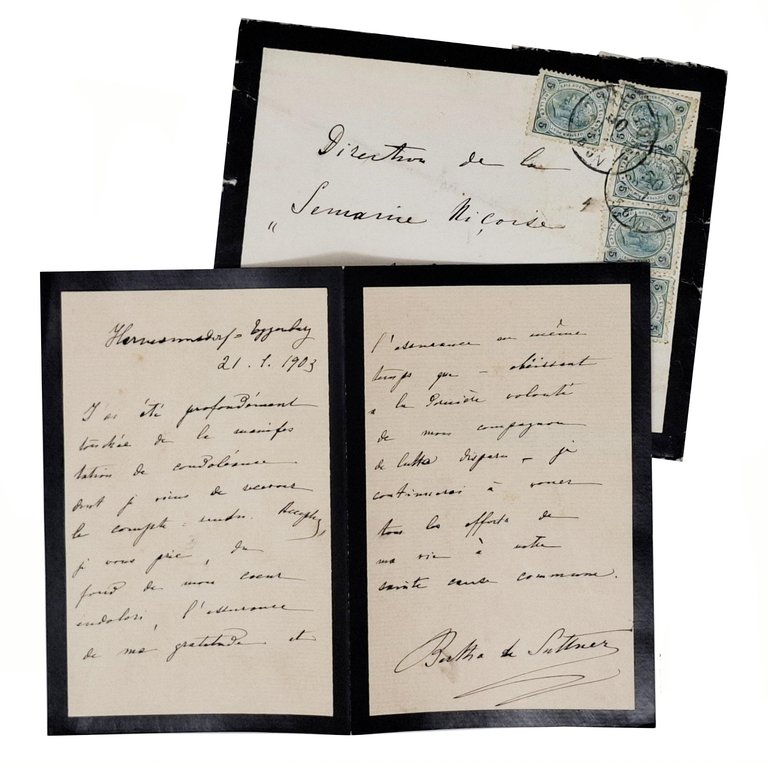 Direction de la
"Semaine Niçoise
5 5
5 5
5 5
5
Harmannsdorf-Eggenburg
21. 1. 1903
J'ai été profondément
touchée de la manifes
tation de condoléance
dont je viens de recevoir
le compte-rendu. Acceptez,
je vous prie, du
fond de mon coeur
endolori, l'assurance
de ma gratitude et
l'assurance en même
temps que - obéissant
à la dernière volonté
de mon compagnon
de lutte disparu - je
continuerai à vouer
tous les efforts de
ma vie à notre
sainte cause commune.
Bertha de Suttner